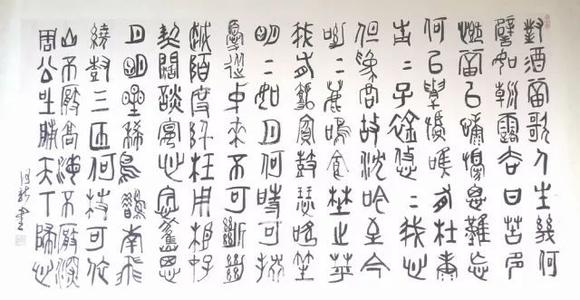 對酒當歌人生幾何
譬如朝露去日苦多
慨當以慷憂思難忘
何以解憂唯有杜康
青々子衿悠々我心
但為君故沈吟至今
呦々鹿鳴食野之苹
我有嘉賓鼓瑟吹笙
明々如月何時可掇
憂從中來不可斷絕
越陌度阡枉用相存
契闊談讌心念舊恩
月明星稀烏鵲南飛
繞樹三匝何枝可依
山不厭高海不厭深
周公吐哺天下歸心
書